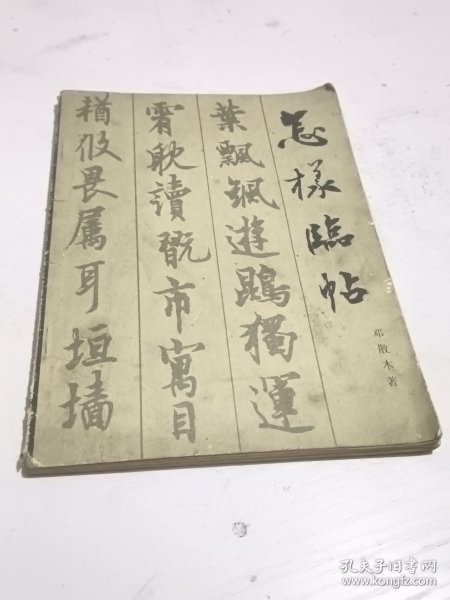 怎樣臨帖
邓散木著
葉飄飖遊鵾獨運
霄耽讀翫市寓目
輶攸畏属耳垣墻
孔夫子旧书网
www.kongfz.com